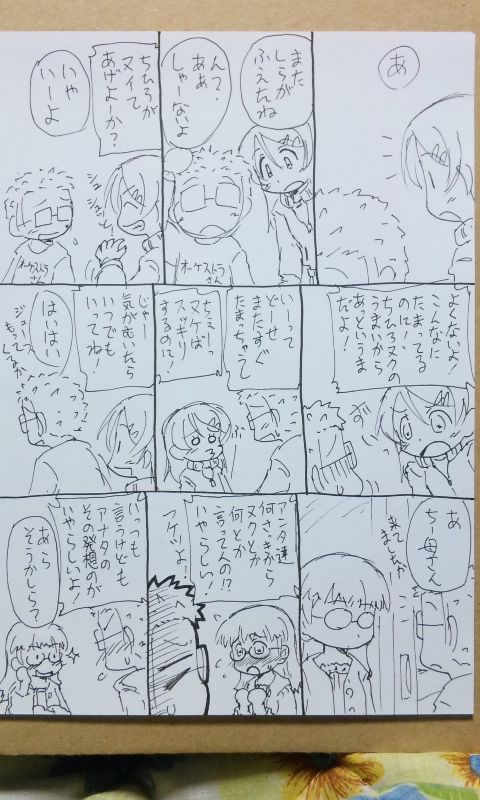 あ
また
しらが
ふえたね
んで、
ああ
しゃーないよ
オーケストラ
さん
ちひろが
ヌイて
あげよーか?
いや
いーよ
オーケストラ
さん
よくないよ!
こんなに
たまってる
のに!
ちひろヌクの
うまいから
あっというま
だよ!
いーって
どーせ
またすぐ
たまっちゃって
ちぇー
マケば
スッキリ
するのに!
じゃー
気がむいたら
いつでも
いってね!
はいはい
あ
ちー母さん
来て
ましたか
アンタ達
何さっきから
ヌクとか
何とか
言ってんの!?
いやらしい!
フケツよ!
いっつも
言うけども
アナタの
その発想のが
いやらしいよ!
あら
そうかしら?